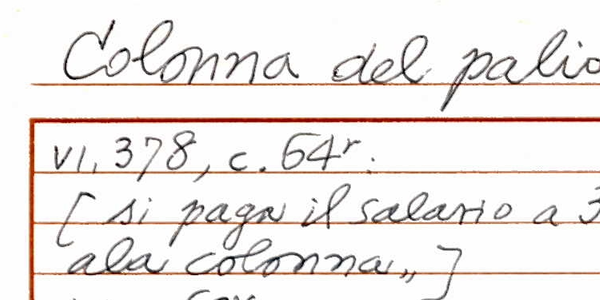 Colonna del palio
VI, 378, c. 64r.
[ si paga il salario a 3
ala colonna„ ]